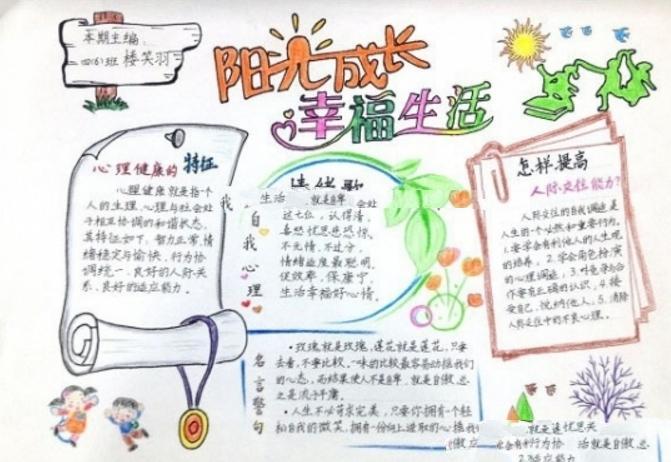 本期主编:
四(6)班 楼笑羽
阳光成长
幸福生活
心理健康的 特征
心理健康就是指个
人的生理、心理与社会处
于相互协调的和谐状态,
其特征如下:智力正常,情
绪稳定与愉快,行为协
调统一、良好的人际关
系、良好的适应能力。
我自我心理
生活 就是自卑
这七位,认得清,
喜怒忧思悲恐惊,
不无情,不过分,
情绪适度最聪明,
促效率,保康宁,
生活幸福好心情。
怎样提高
人际交往能力?
人际交往的自我调适是
人生的个必然和重要行为。
1、要学会有利他人的人生观
的培养。2、学会角色扮演
的心理调适,3、对竞争与合
作要有正确的认识,4、接
受自己,悦纳他人;5、消除
人际交往中的不良心理。
名言警句
·玫瑰就是玫瑰,莲花就是莲花,只要
去看,不要比较。一味的比较最容易动摇我们
的心态,而结果使人不是自卑,就是自傲,总
之是流于平庸。
·人生不必苛求完美,只要你拥有一个轻
松自我的微笑,拥有一份向上进取的心